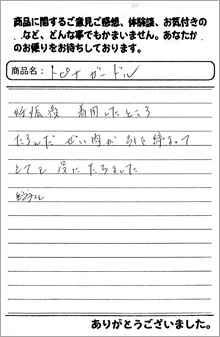 商品に関するご意見ご感想、体験談、お気付きの
など、どんな事でもかまいません。あなたか
のお便りをお待ちしております。
商品名：トピナガードル
妊娠後 着用したところ
たるんだ ぜい肉が 引き締まって
とても 役にたちました
ありがとうございました。